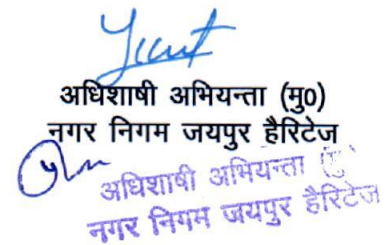 अधिशाषी अभियन्ता (मु0)
नगर निगम जयपुर हैरिटेज
अधिशाषी अभियन्ता
नगर निगम जयपुर हैरिटेज